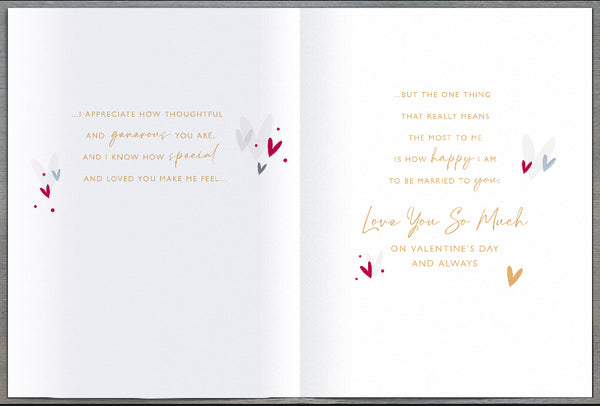 ...I APPRECIATE HOW THOUGHTFUL
AND generous YOU ARE,
AND I KNOW HOW special
AND LOVED YOU MAKE ME FEEL...
...BUT THE ONE THING
THAT REALLY MEANS
THE MOST TO ME
IS HOW happy I AM
TO BE MARRIED TO you.
Love You So Much
ON VALENTINE'S DAY
AND ALWAYS